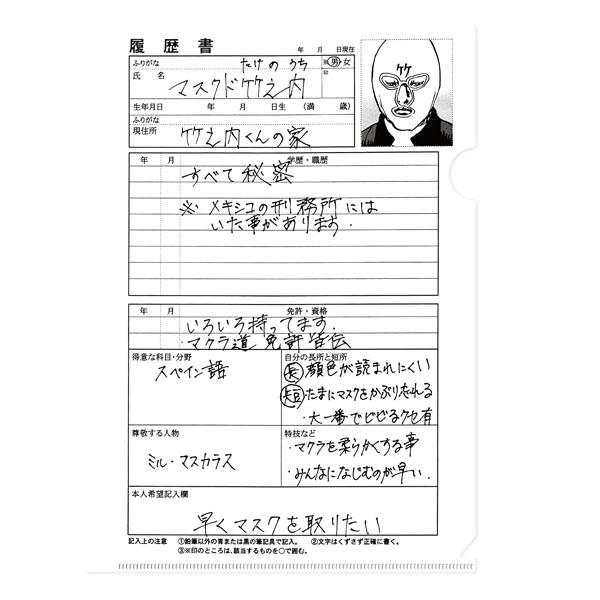 履歴書
年 月 日現在
ふりがな たけのうち
※男・女
氏名 マスクド竹之内
印
生年月日 年 月 日生 (満 歳)
ふりがな
現住所 竹之内くんの家
竹
年 月 学歴・職歴
すべて秘密
※ メキシコの刑務所には
いた事があります.
年 月 免許・資格
いろいろ持ってます.
・マクラ道 免許皆伝
得意な科目・分野
スペイン語
自分の長所と短所
長 顔色が読まれにくい
短 たまにマスクをかぶり忘れる
・大一番でビビるクセ有
尊敬する人物
ミル・マスカラス
特技など
・マクラを柔らかくする事
・みんなになじむのが早い.
本人希望記入欄
早くマスクを取りたい
記入上の注意 ①鉛筆以外の青または黒の筆記具で記入。 ②文字はくずさず正確に書く。
③※印のところは、該当するものを○で囲む。